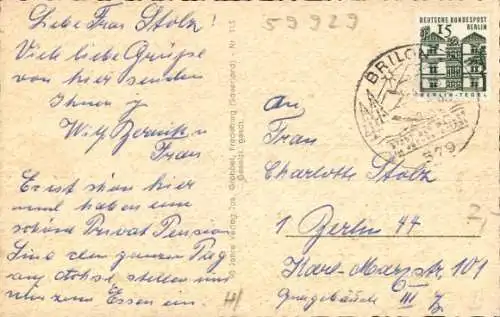 Liebe Frau Stolz!
Viele liebe Grüße
von hier senden
Ihnen
Wilf u.
Frau
Es ist schön hier
und haben eine
schöne Privat Pension
Sind den ganzen Tag
auf Achse stellen uns
nur zum Essen ein.
59929
Jahre Verlag Jos. Grobbel, Fredeburg (Sauerland), Nr. 115
Gesetzl. gesch.
DEUTSCHE BUNDESPOST
BERLIN
15
BERLIN-TEGEL
BRILON
579
An
Frau
Charlotte Stolz
1 Berlin 44
Karl-Marxstr 101
Quergebäude III